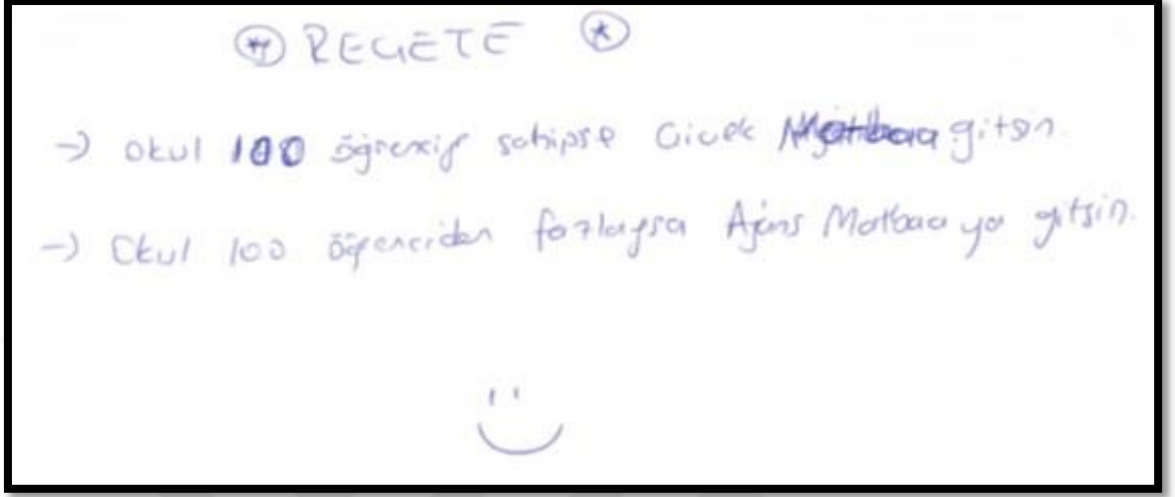 REÇETE
→ Okul 100 öğrenciye sahipse Çiçek Matbaa gitsin.
→ Okul 100 öğrenciden fazlaysa Ajans Matbaa ya gitsin.